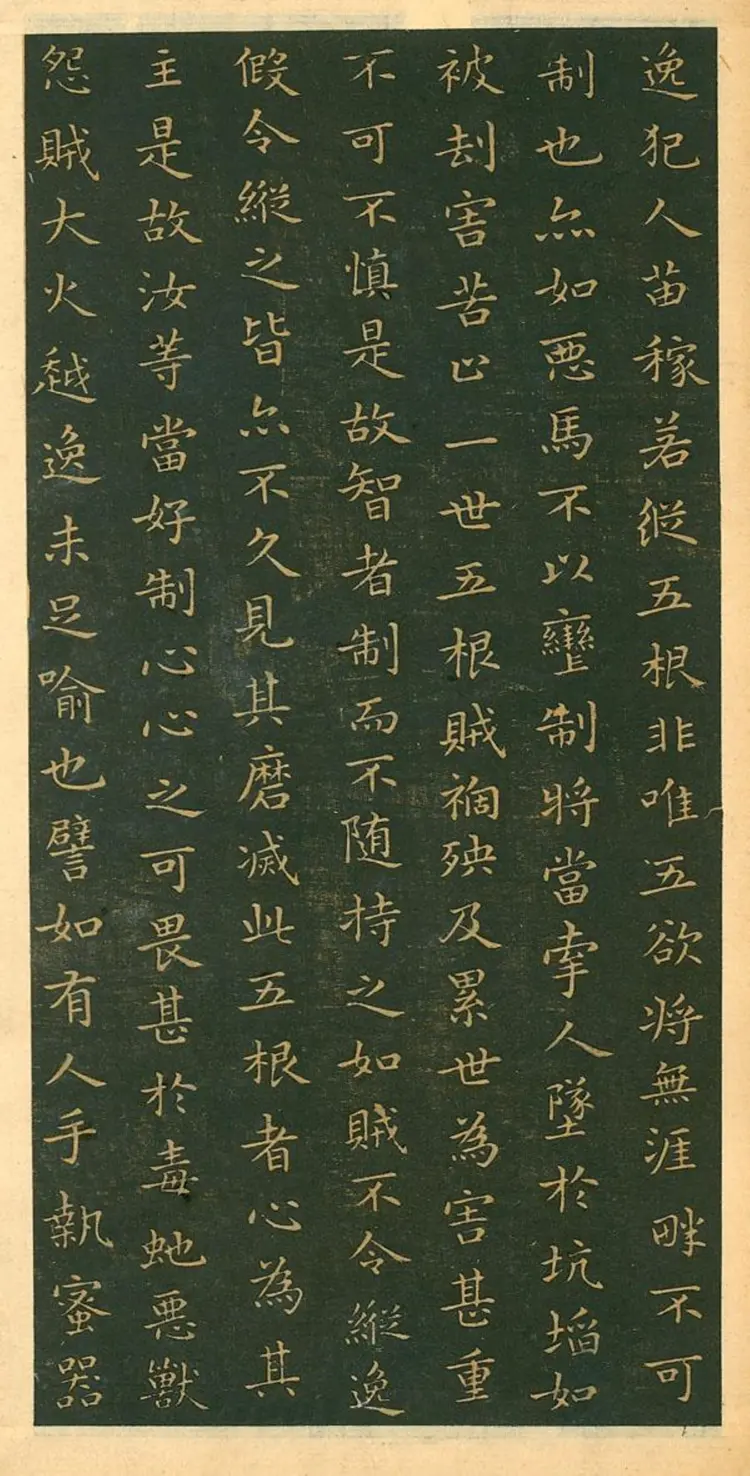 逸犯人苗稼若縱五根非唯五欲将無涯畔不可
制也亦如惡馬不以轡制將當牽人墜於坑埳如
被刦害苦止一世五根賊禍殃及累世為害甚重
不可不慎是故智者制而不随持之如賊不令縱逸
假令縱之皆亦不久見其磨滅此五根者心為其
主是故汝等當好制心心之可畏甚於毒虵惡獸
怨賊大火越逸未足喻也譬如有人手執蜜器